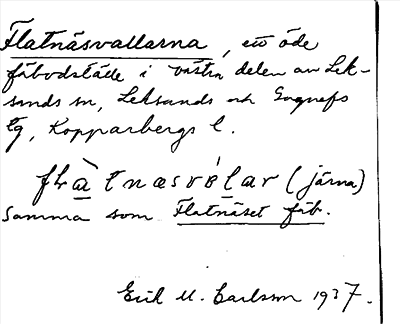 Flatnäsvallarna, ett öde
fäbodställe i västra delen av Lek-
sands sn, Leksands och Gagnefs
tg, Kopparbergs l.
flàtnæsvɵ́lar (järna)
Samma som Flatnäset fäb.
Erik M. Carlsson 1937.